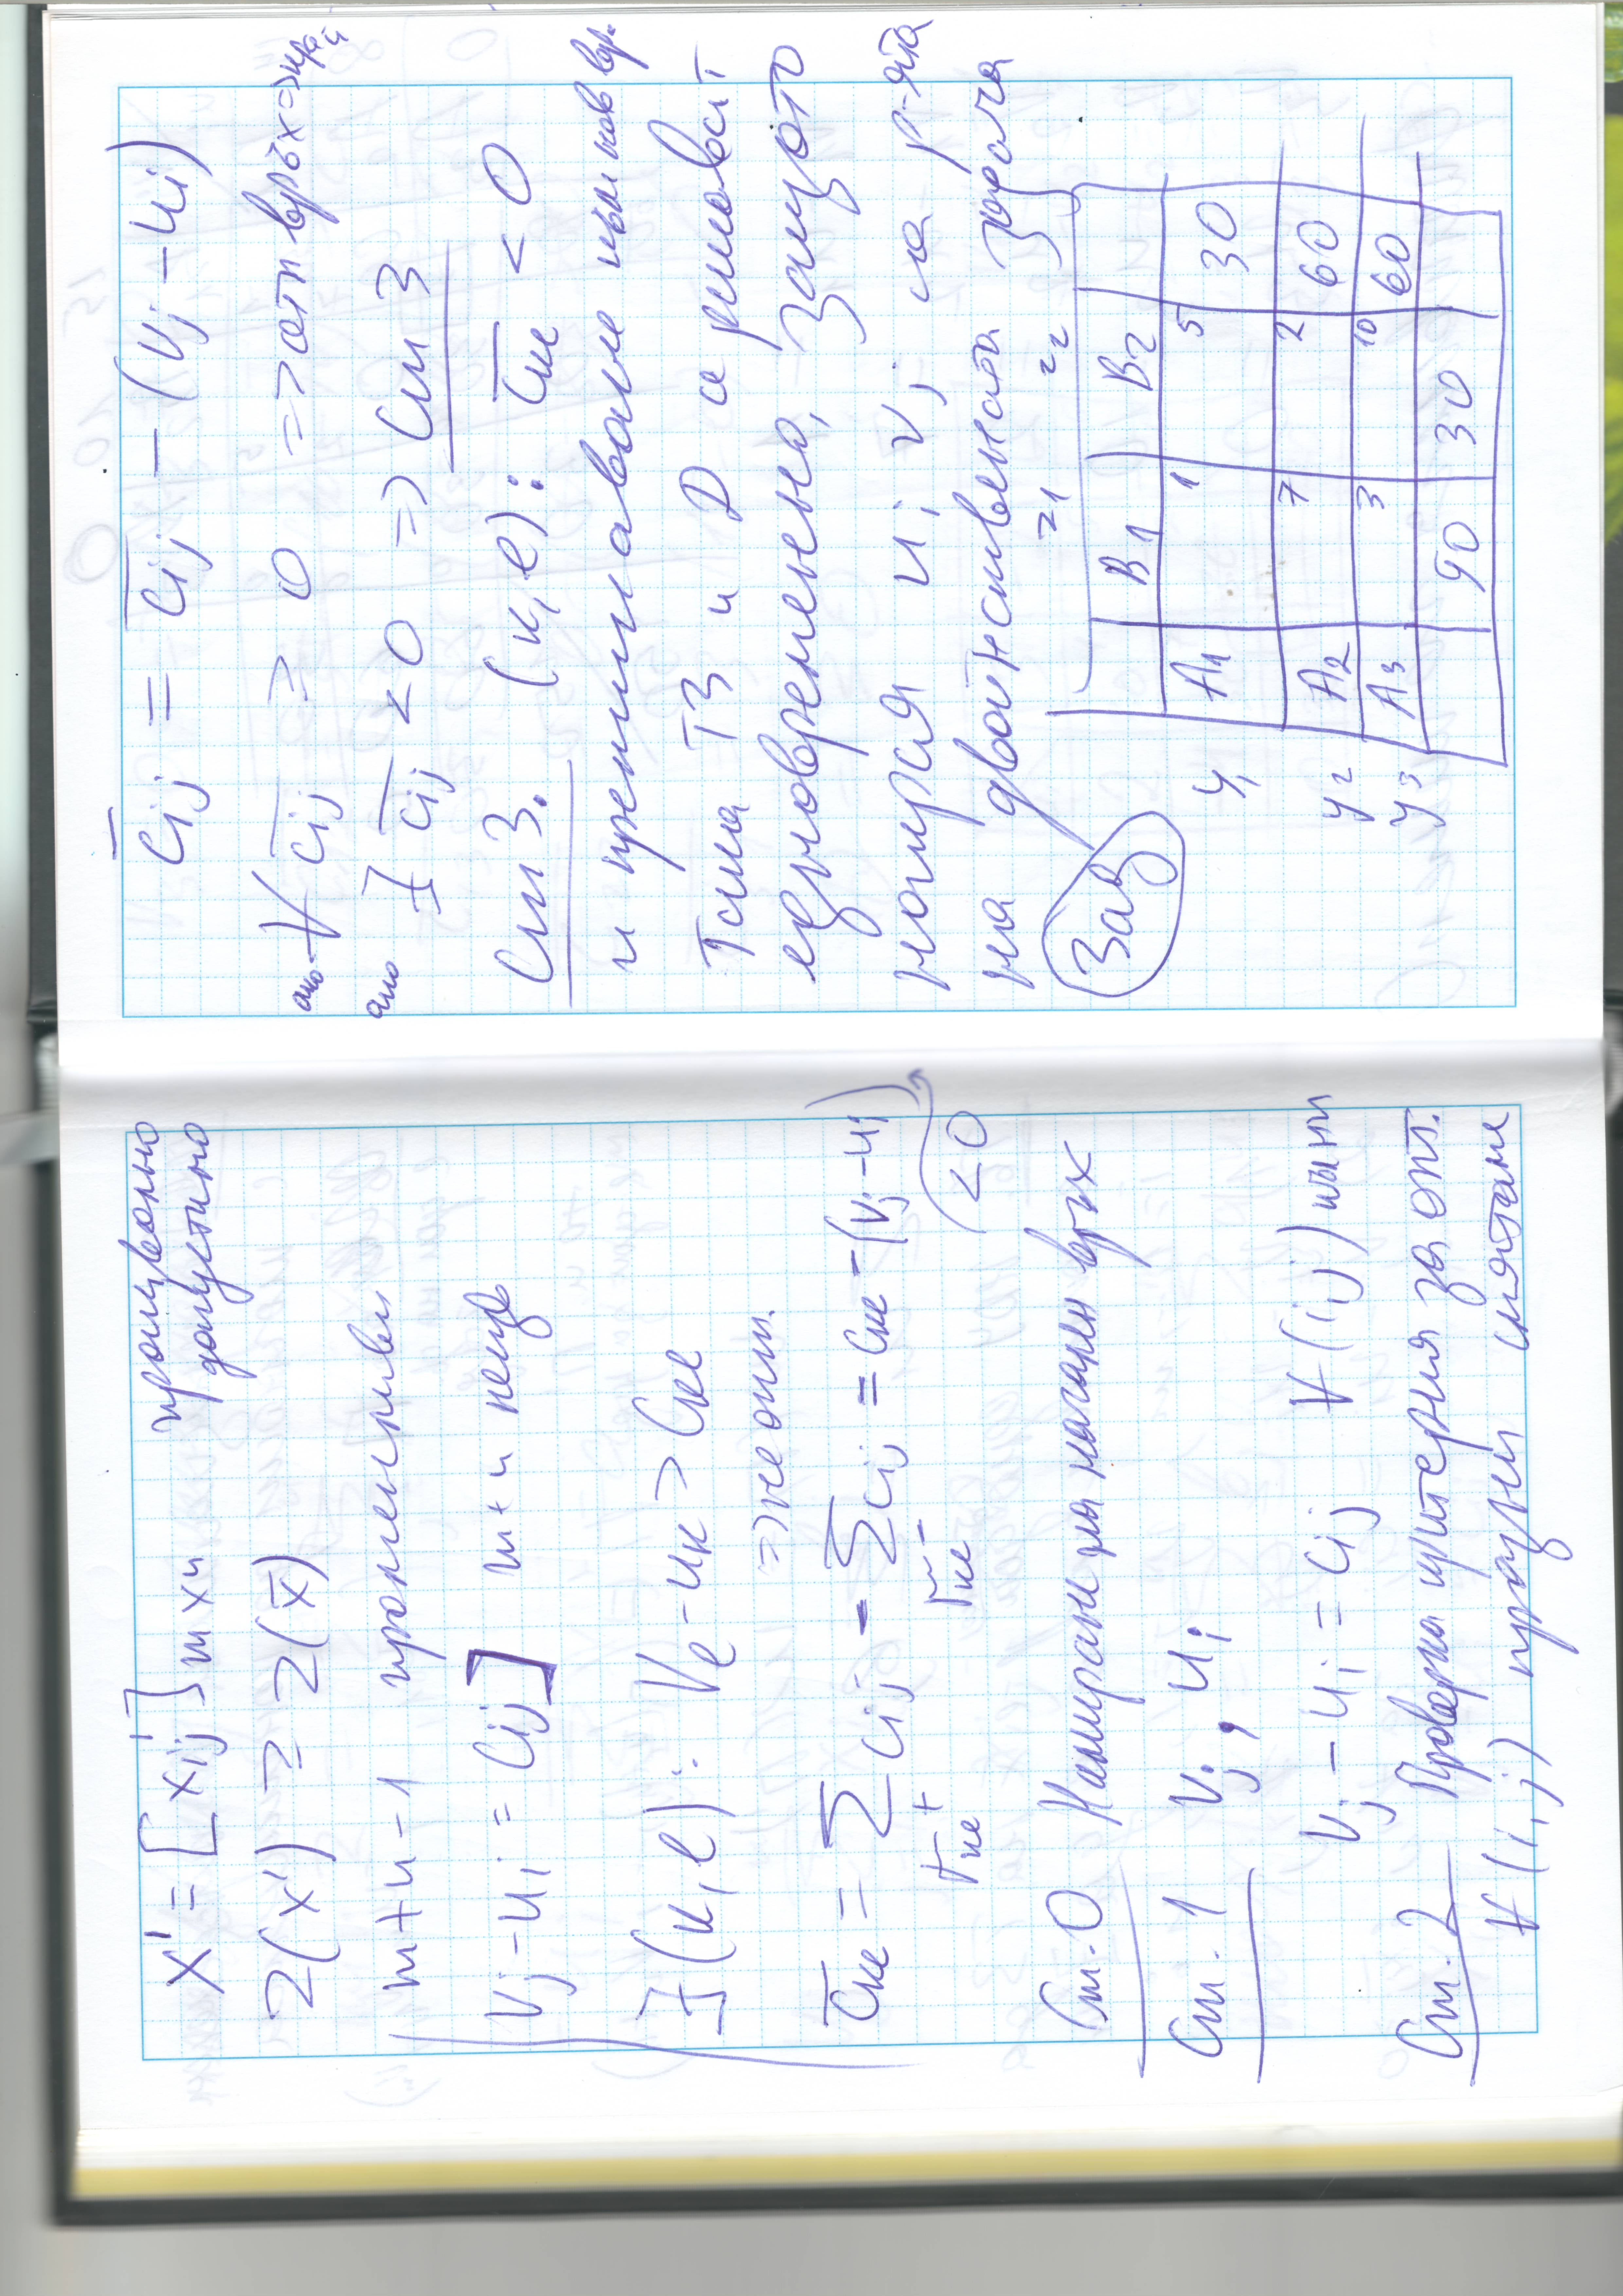 X' = [x'ij] m x n произволно
допустимо
Z(x') ≥ Z(x̄)
m+n-1 променливи
Vj - Ui = Cij] m+n неизв
∃(k,l): Vl - Uk > Ckl
=> не опт.
C̄kl = Σ Cij - Σ Cij = Ckl - (Vj - Ui)
Γkl+ Γkl- < 0
Ст. 0 Намиране на начален връх
Ст. 1 Vj, Ui
Vj - Ui = Cij ∀(i,j)
Ст. 2 Проверка критерия за опт.
∀(i,j) празни клетки
C̄ij = Cij - (Vj - Ui)
ако ∀ C̄ij ≥ 0 => опт връх => край
ако ∃ C̄ij < 0 => Ст 3
Ст 3. (k,l): C̄kl < 0
и преминаваме към нов вр.
Така ТЗ и D се решават
едновременно, защото
намирая Ui Vj са р-ята
на двойнствената задача
Зад
z1 z2
B1 B2
y1 A1 1 5 30
y2 A2 7 2 60
y3 A3 3 10 60
90 30